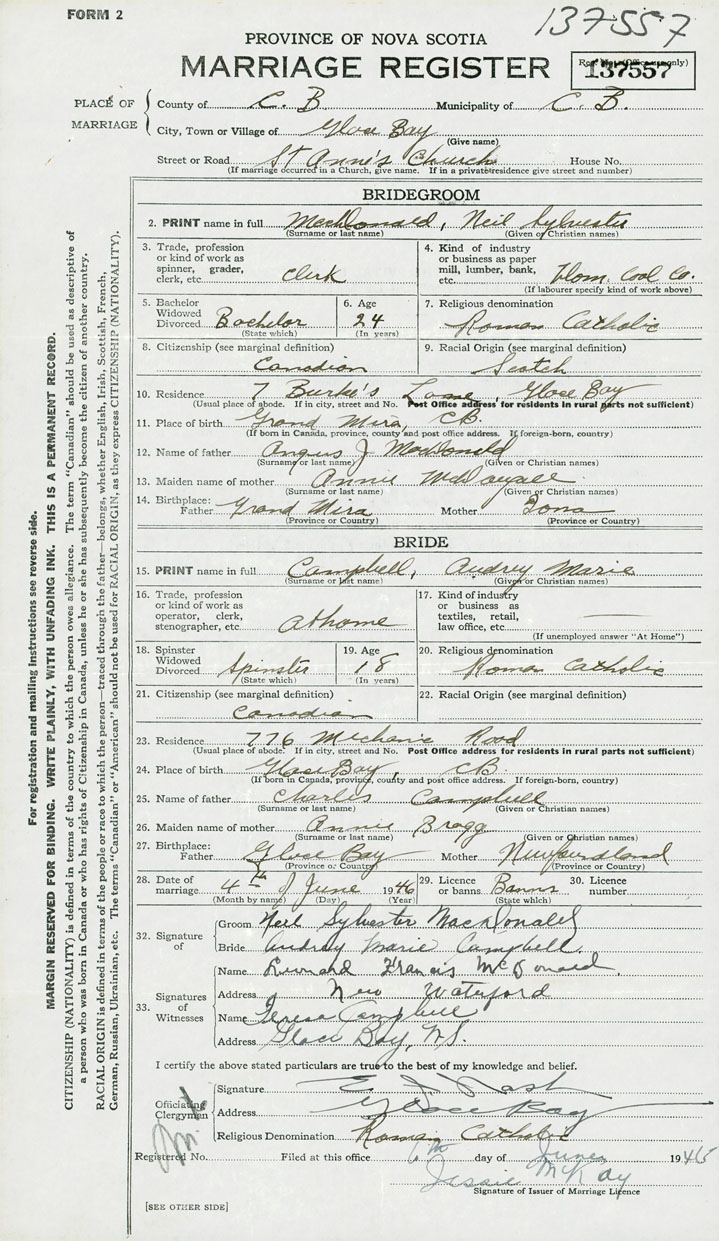 FORM 2
137557
PROVINCE OF NOVA SCOTIA
MARRIAGE REGISTER
137557
PLACE OF MARRIAGE
County of C. B. Municipality of C. B.
City, Town or Village of Glace Bay
(Give name)
Street or Road St Anne's Church House No.
(If marriage occurred in a Church, give name. If in a private residence give street and number)
BRIDEGROOM
2. PRINT name in full MacDonald, Neil Sylvester
(Surname or last name) (Given or Christian names)
3. Trade, profession or kind of work as spinner, grader, clerk, etc. Clerk
4. Kind of industry or business as paper mill, lumber, bank, etc. Dom. Coal Co.
(If labourer specify kind of work above)
5. Bachelor Widowed Divorced Bachelor
(State which)
6. Age 24
(In years)
7. Religious denomination
Roman Catholic
8. Citizenship (see marginal definition)
Canadian
9. Racial Origin (see marginal definition)
Scotch
10. Residence 7 Burke's Lane, Glace Bay
(Usual place of abode. If in city, street and No. Post Office address for residents in rural parts not sufficient)
11. Place of birth Grand Mira, CB.
(If born in Canada, province, county and post office address. If foreign-born, country)
12. Name of father Angus J MacDonald
(Surname or last name) (Given or Christian names)
13. Maiden name of mother Annie McDougall
(Surname or last name) (Given or Christian names)
14. Birthplace: Father Grand Mira Mother Iona
(Province or Country) (Province or Country)
BRIDE
15. PRINT name in full Campbell, Audrey Marie
(Surname or last name) (Given or Christian names)
16. Trade, profession or kind of work as operator, clerk, stenographer, etc. at home
17. Kind of industry or business as textiles, retail, law office, etc.
(If unemployed answer "At Home")
18. Spinster Widowed Divorced Spinster
(State which)
19. Age 18
(In years)
20. Religious denomination
Roman Catholic
21. Citizenship (see marginal definition)
Canadian
22. Racial Origin (see marginal definition)
23. Residence 776 Mechanic Road
(Usual place of abode. If in city, street and No. Post Office address for residents in rural parts not sufficient)
24. Place of birth Glace Bay, CB
(If born in Canada, province, county and post office address. If foreign-born, country)
25. Name of father Charles Campbell
(Surname or last name) (Given or Christian names)
26. Maiden name of mother Annie Bragg
(Surname or last name) (Given or Christian names)
27. Birthplace: Father Glace Bay Mother Newfoundland
(Province or Country) (Province or Country)
28. Date of marriage 4th of June 1946
(Month by name) (Day) (Year)
29. Licence or banns Banns
(State which)
30. Licence number
32. Signature of
Groom Neil Sylvester MacDonald
Bride Audrey Marie Campbell.
33. Signatures of Witnesses
Name Francis McDonald.
Address New Waterford
Name Teresa Campbell
Address Glace Bay, N.S.
I certify the above stated particulars are true to the best of my knowledge and belief.
Officiating Clergyman
Signature E. J. Nash
Address Glace Bay
Religious Denomination Roman Catholic
Registered No. Filed at this office day of June 1946
Jessie McKay
Signature of Issuer of Marriage Licence
[SEE OTHER SIDE]
For registration and mailing instructions see reverse side.
MARGIN RESERVED FOR BINDING. WRITE PLAINLY, WITH UNFADING INK. THIS IS A PERMANENT RECORD.
CITIZENSHIP (NATIONALITY) is defined in terms of the country to which the person owes allegiance. The term "Canadian" should be used as descriptive of
a person who was born in Canada or who has rights of Citizenship in Canada, unless he or she has subsequently become the citizen of another country.
RACIAL ORIGIN is defined in terms of the people or race to which the person—traced through the father—belongs, whether English, Irish, Scottish, French,
German, Russian, Ukrainian, etc. The terms "Canadian" or "American" should not be used for RACIAL ORIGIN, as they express CITIZENSHIP (NATIONALITY).